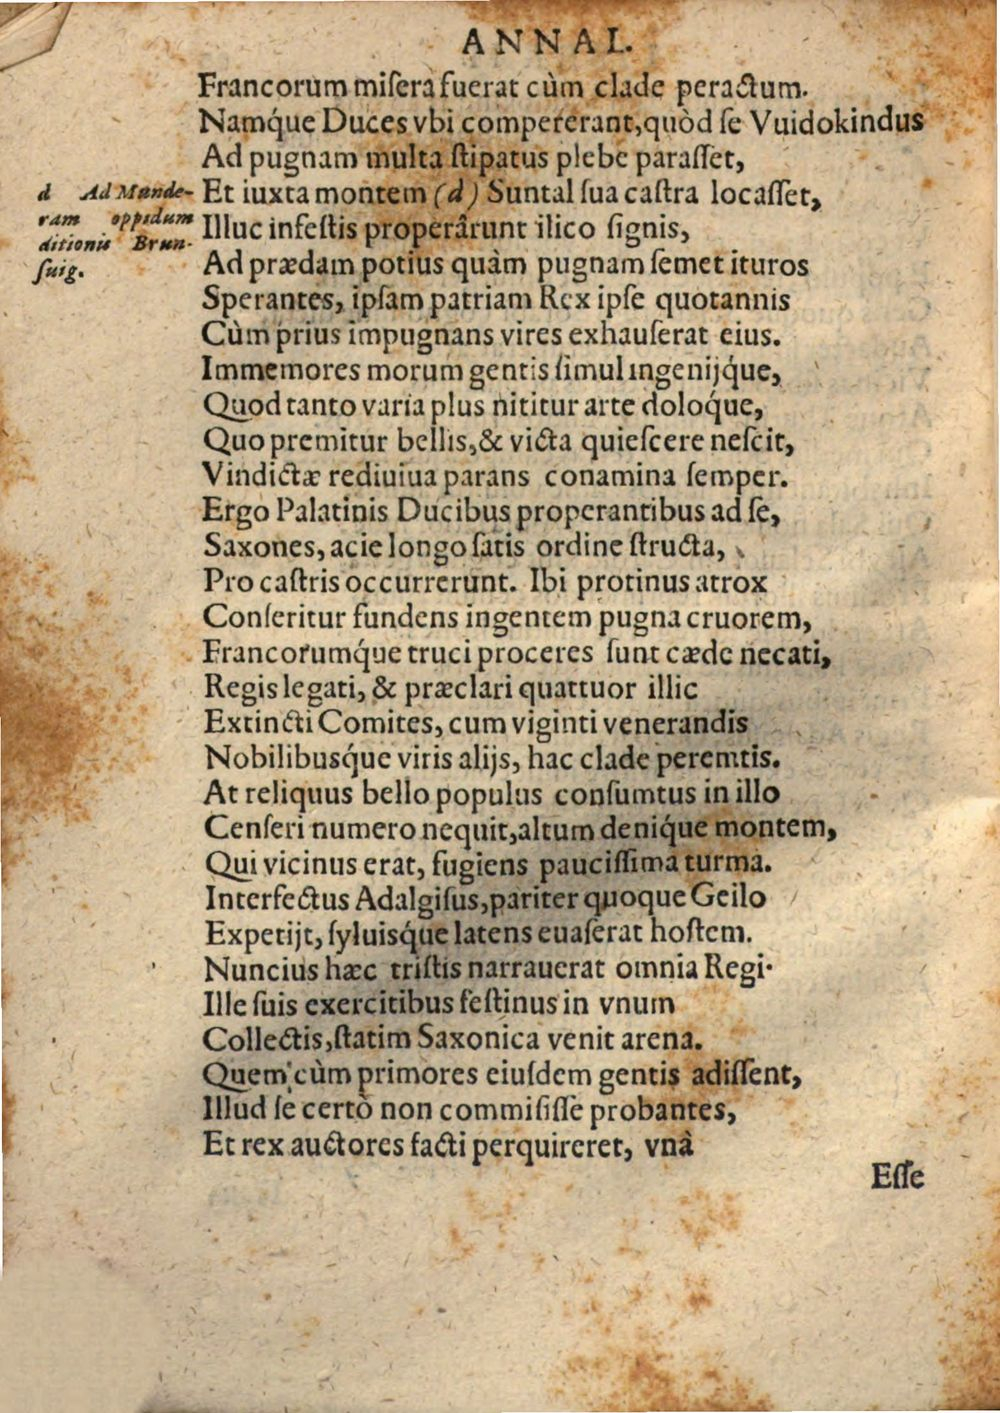 ANNAL.
Francorum miſera fuerat cùm clade peractum.
Namq́ue Duces vbi compererant, quòd ſe Vuidokindus
Ad pugnam multa ſtipatus plebe paraſſet,
Et iuxta montem (d) Suntal ſua caſtra locaſſet,
d Ad Munde-
ram oppidum
ditionis Brun-
ſuig.
Illuc infeſtis properârunt ilico ſignis,
Ad prædam potius quàm pugnam ſemet ituros
Sperantes, ipſam patriam Rex ipſe quotannis
Cùm prius impugnans vires exhauſerat eius.
Immemores morum gentis ſimul ingenijq́ue,
Quod tanto varia plus nititur arte doloq́ue,
Quo premitur bellis, & victa quieſcere neſcit,
Vindictæ rediuiua parans conamina ſemper.
Ergo Palatinis Ducibus properantibus ad ſe,
Saxones, acie longo ſatis ordine ſtructa,
Pro caſtris occurrerunt. Ibi protinus atrox
Conſeritur fundens ingentem pugna cruorem,
Francorumq́ue truci proceres ſunt cæde necati,
Regis legati, & præclari quattuor illic
Extincti Comites, cum viginti venerandis
Nobilibusq́ue viris alijs, hac clade peremtis.
At reliquus bello populus conſumtus in illo
Cenſeri numero nequit, altum deniq́ue montem,
Qui vicinus erat, fugiens pauciſſima turma.
Interfectus Adalgiſus, pariter quoque Geilo
Expetijt, ſyluisq́ue latens euaſerat hoſtem.
Nuncius hæc triſtis narrauerat omnia Regi.
Ille ſuis exercitibus feſtinus in vnum
Collectis, ſtatim Saxonica venit arena.
Quem cùm primores eiuſdem gentis adiſſent,
Illud ſe certò non commiſiſſe probantes,
Et rex auctores facti perquireret, vnâ
Eſſe